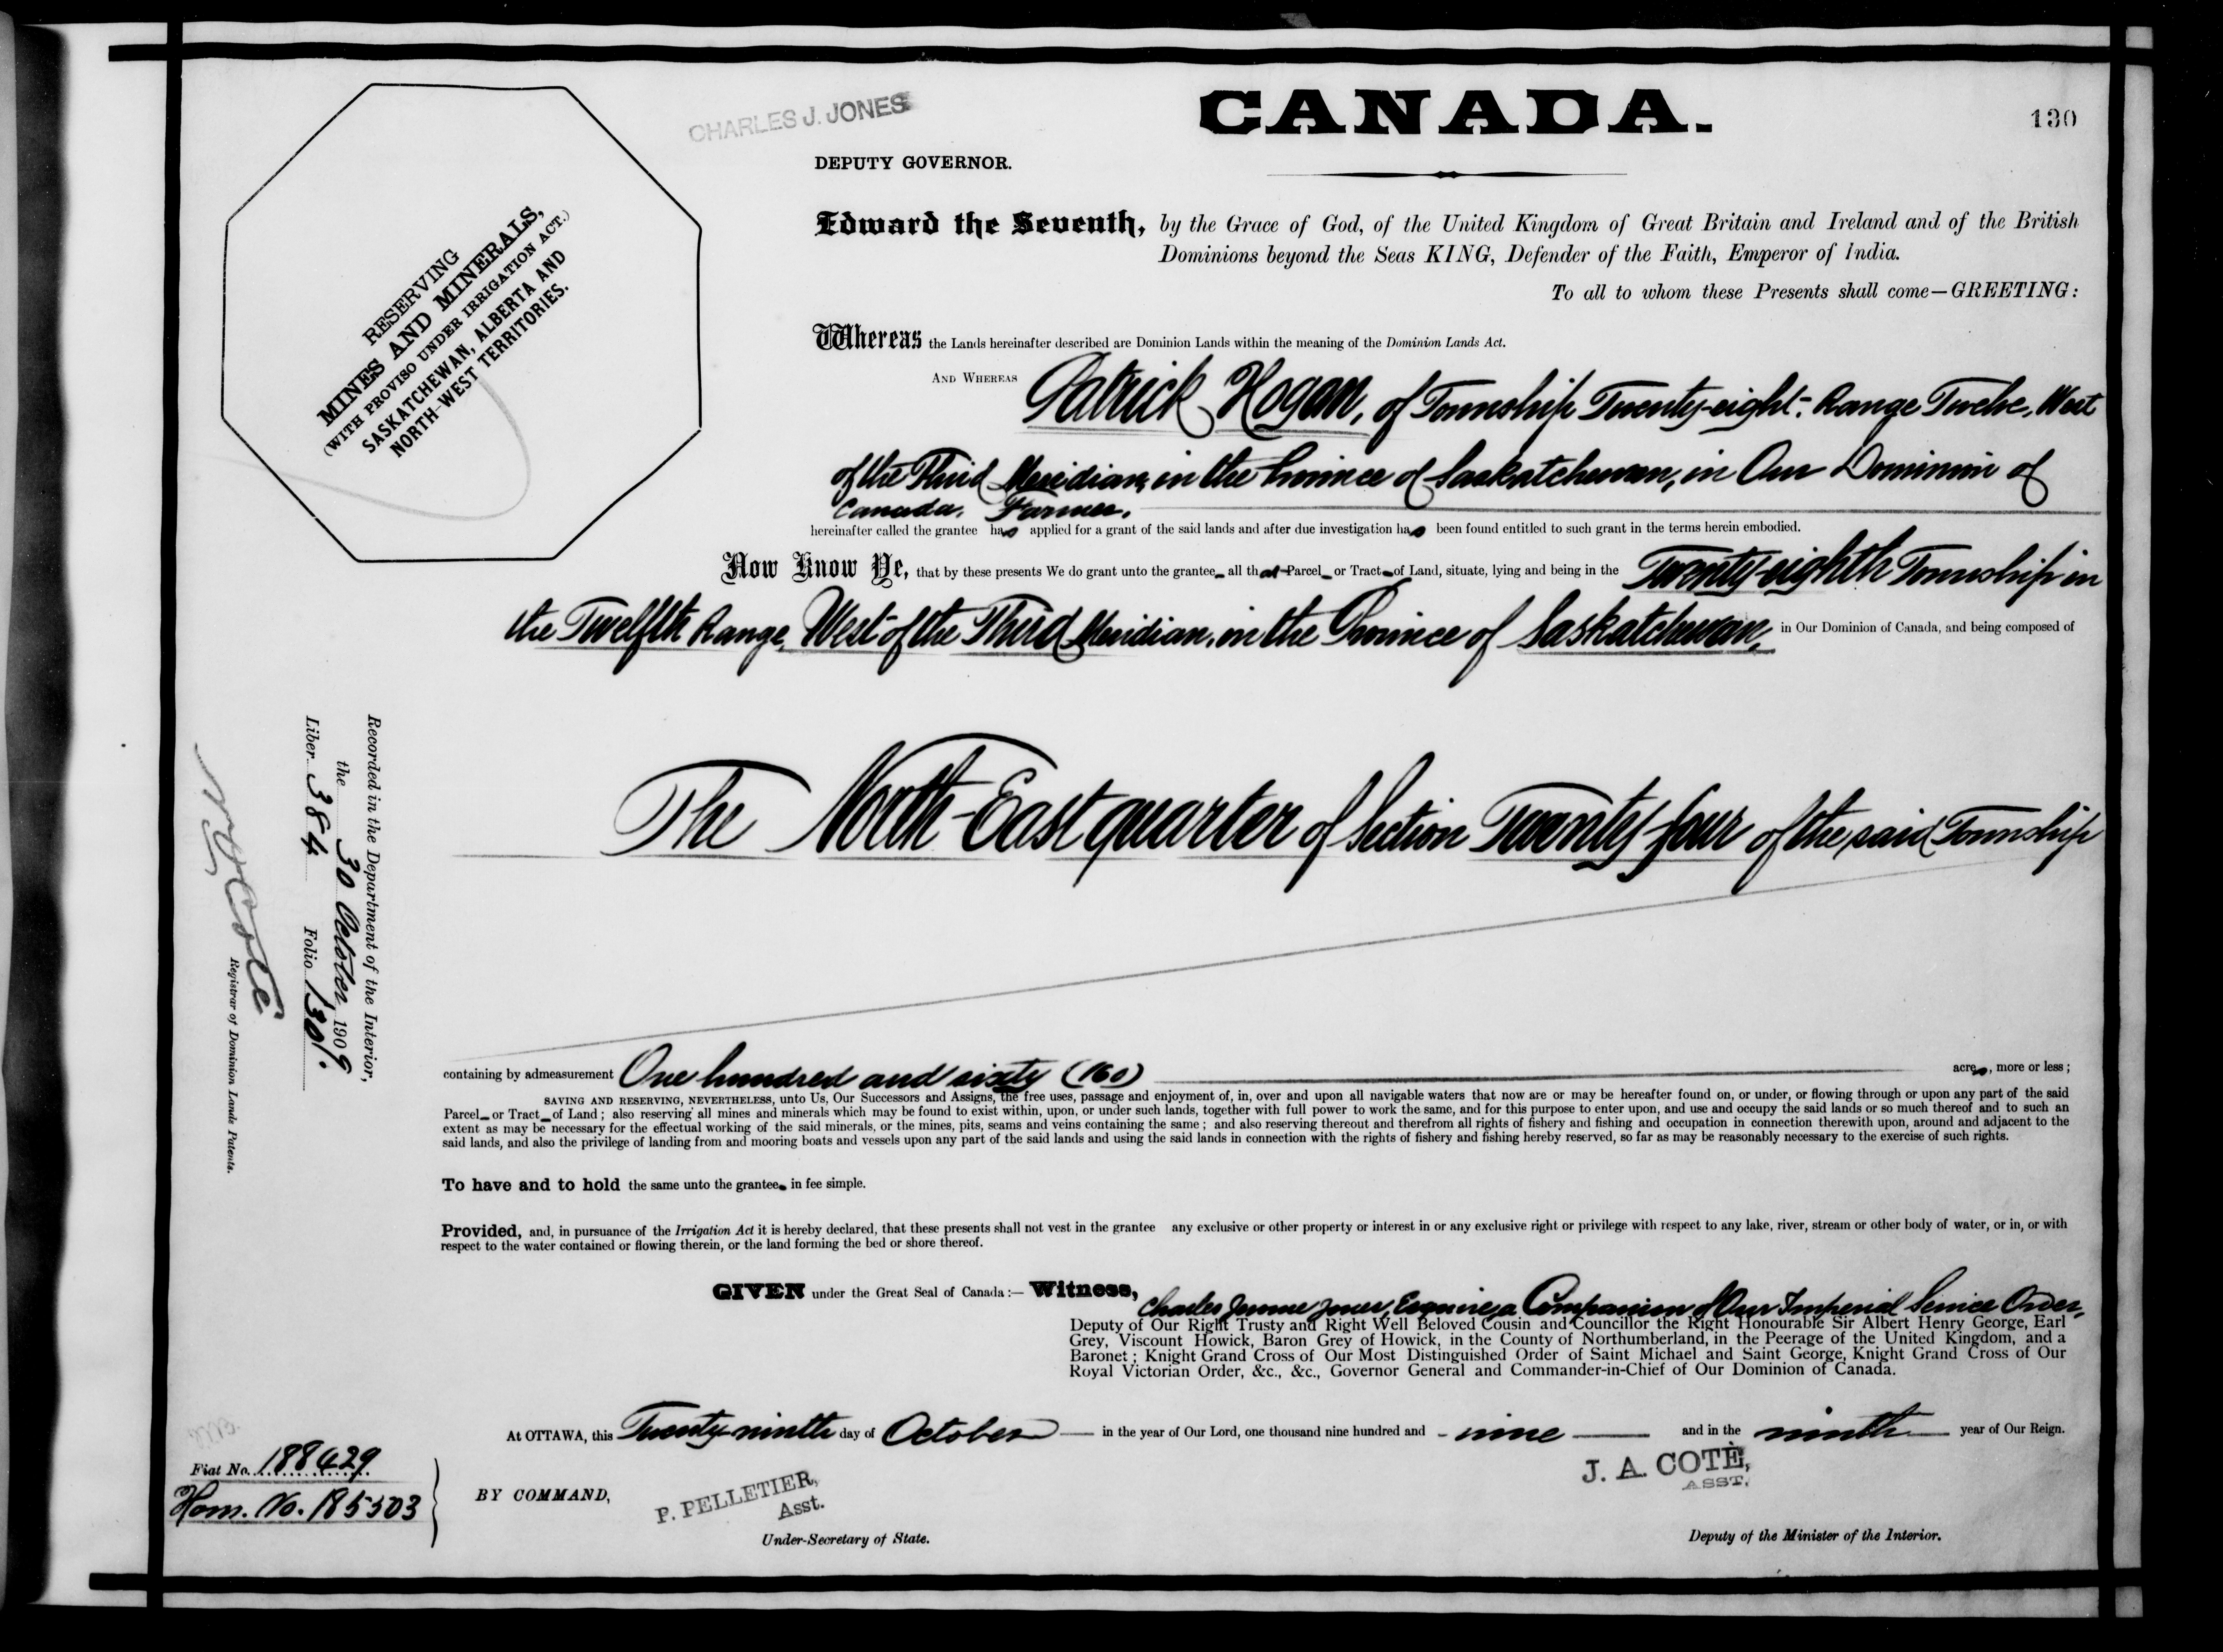 CANADA.
130
CHARLES J. JONES
DEPUTY GOVERNOR.
RESERVING
MINES AND MINERALS,
(WITH PROVISO UNDER IRRIGATION ACT.)
SASKATCHEWAN, ALBERTA AND
NORTH-WEST TERRITORIES.
Edward the Seventh, by the Grace of God, of the United Kingdom of Great Britain and Ireland and of the British
Dominions beyond the Seas KING, Defender of the Faith, Emperor of India.
To all to whom these Presents shall come—GREETING:
Whereas the Lands hereinafter described are Dominion Lands within the meaning of the Dominion Lands Act.
AND WHEREAS Patrick Hogan, of Township Twenty-eight, Range Twelve, West
of the Third Meridian, in the Province of Saskatchewan, in Our Dominion of
Canada, Farmer,
hereinafter called the grantee has applied for a grant of the said lands and after due investigation has been found entitled to such grant in the terms herein embodied.
Now Know Ye, that by these presents We do grant unto the grantee all that Parcel or Tract of Land, situate, lying and being in the Twenty-eighth Township in
the Twelfth Range, West of the Third Meridian, in the Province of Saskatchewan, in Our Dominion of Canada, and being composed of
The North-East quarter of Section Twenty-four of the said Township
containing by admeasurement One hundred and sixty (160) acres, more or less;
SAVING AND RESERVING, NEVERTHELESS, unto Us, Our Successors and Assigns, the free uses, passage and enjoyment of, in, over and upon all navigable waters that now are or may be hereafter found on, or under, or flowing through or upon any part of the said
Parcel or Tract of Land; also reserving all mines and minerals which may be found to exist within, upon, or under such lands, together with full power to work the same, and for this purpose to enter upon, and use and occupy the said lands or so much thereof and to such an
extent as may be necessary for the effectual working of the said minerals, or the mines, pits, seams and veins containing the same; and also reserving thereout and therefrom all rights of fishery and fishing and occupation in connection therewith upon, around and adjacent to the
said lands, and also the privilege of landing from and mooring boats and vessels upon any part of the said lands and using the said lands in connection with the rights of fishery and fishing hereby reserved, so far as may be reasonably necessary to the exercise of such rights.
To have and to hold the same unto the grantee in fee simple.
Provided, and, in pursuance of the Irrigation Act it is hereby declared, that these presents shall not vest in the grantee any exclusive or other property or interest in or any exclusive right or privilege with respect to any lake, river, stream or other body of water, or in, or with
respect to the water contained or flowing therein, or the land forming the bed or shore thereof.
GIVEN under the Great Seal of Canada:— Witness, Charles Jones, Esquire, a Companion of Our Imperial Service Order,
Deputy of Our Right Trusty and Right Well Beloved Cousin and Councillor the Right Honourable Sir Albert Henry George, Earl
Grey, Viscount Howick, Baron Grey of Howick, in the County of Northumberland, in the Peerage of the United Kingdom, and a
Baronet; Knight Grand Cross of Our Most Distinguished Order of Saint Michael and Saint George, Knight Grand Cross of Our
Royal Victorian Order, &c., &c., Governor General and Commander-in-Chief of Our Dominion of Canada.
At OTTAWA, this Twenty-ninth day of October in the year of Our Lord, one thousand nine hundred and - nine and in the ninth year of Our Reign.
BY COMMAND,
P. PELLETIER,
Asst.
Under-Secretary of State.
J. A. COTÈ,
ASST.
Deputy of the Minister of the Interior.
Fiat No. 188429
Hom. No. 185503
Recorded in the Department of the Interior,
the 30 October 1909
Liber 384 Folio 130.
Coté
Registrar of Dominion Lands Patents.